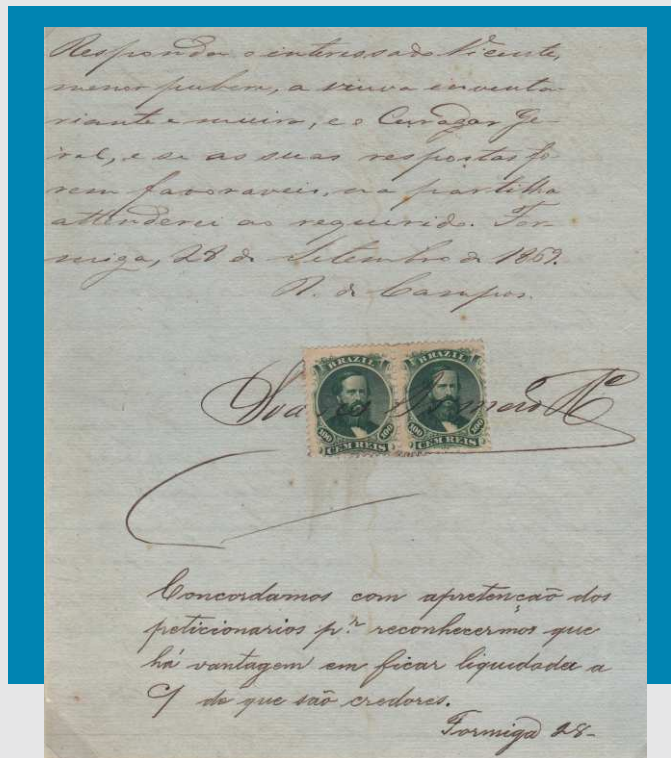 Responda o interessado Vicente,
menor pubere, a viuva inventa-
riante e meeira, e o Curador Ge-
ral, e se as suas respostas fo-
rem favoraveis, na partilha
attenderei ao requerido. For-
miga, 28 de Setembro de 1869.
de Campos.
BRAZIL BRAZIL
100 100 100 100
CEM REIS CEM REIS
Concordamos com apretenção dos
peticionarios p.r reconhecermos que
há vantagem em ficar liquidada a
de que são credores.
Formiga 28-